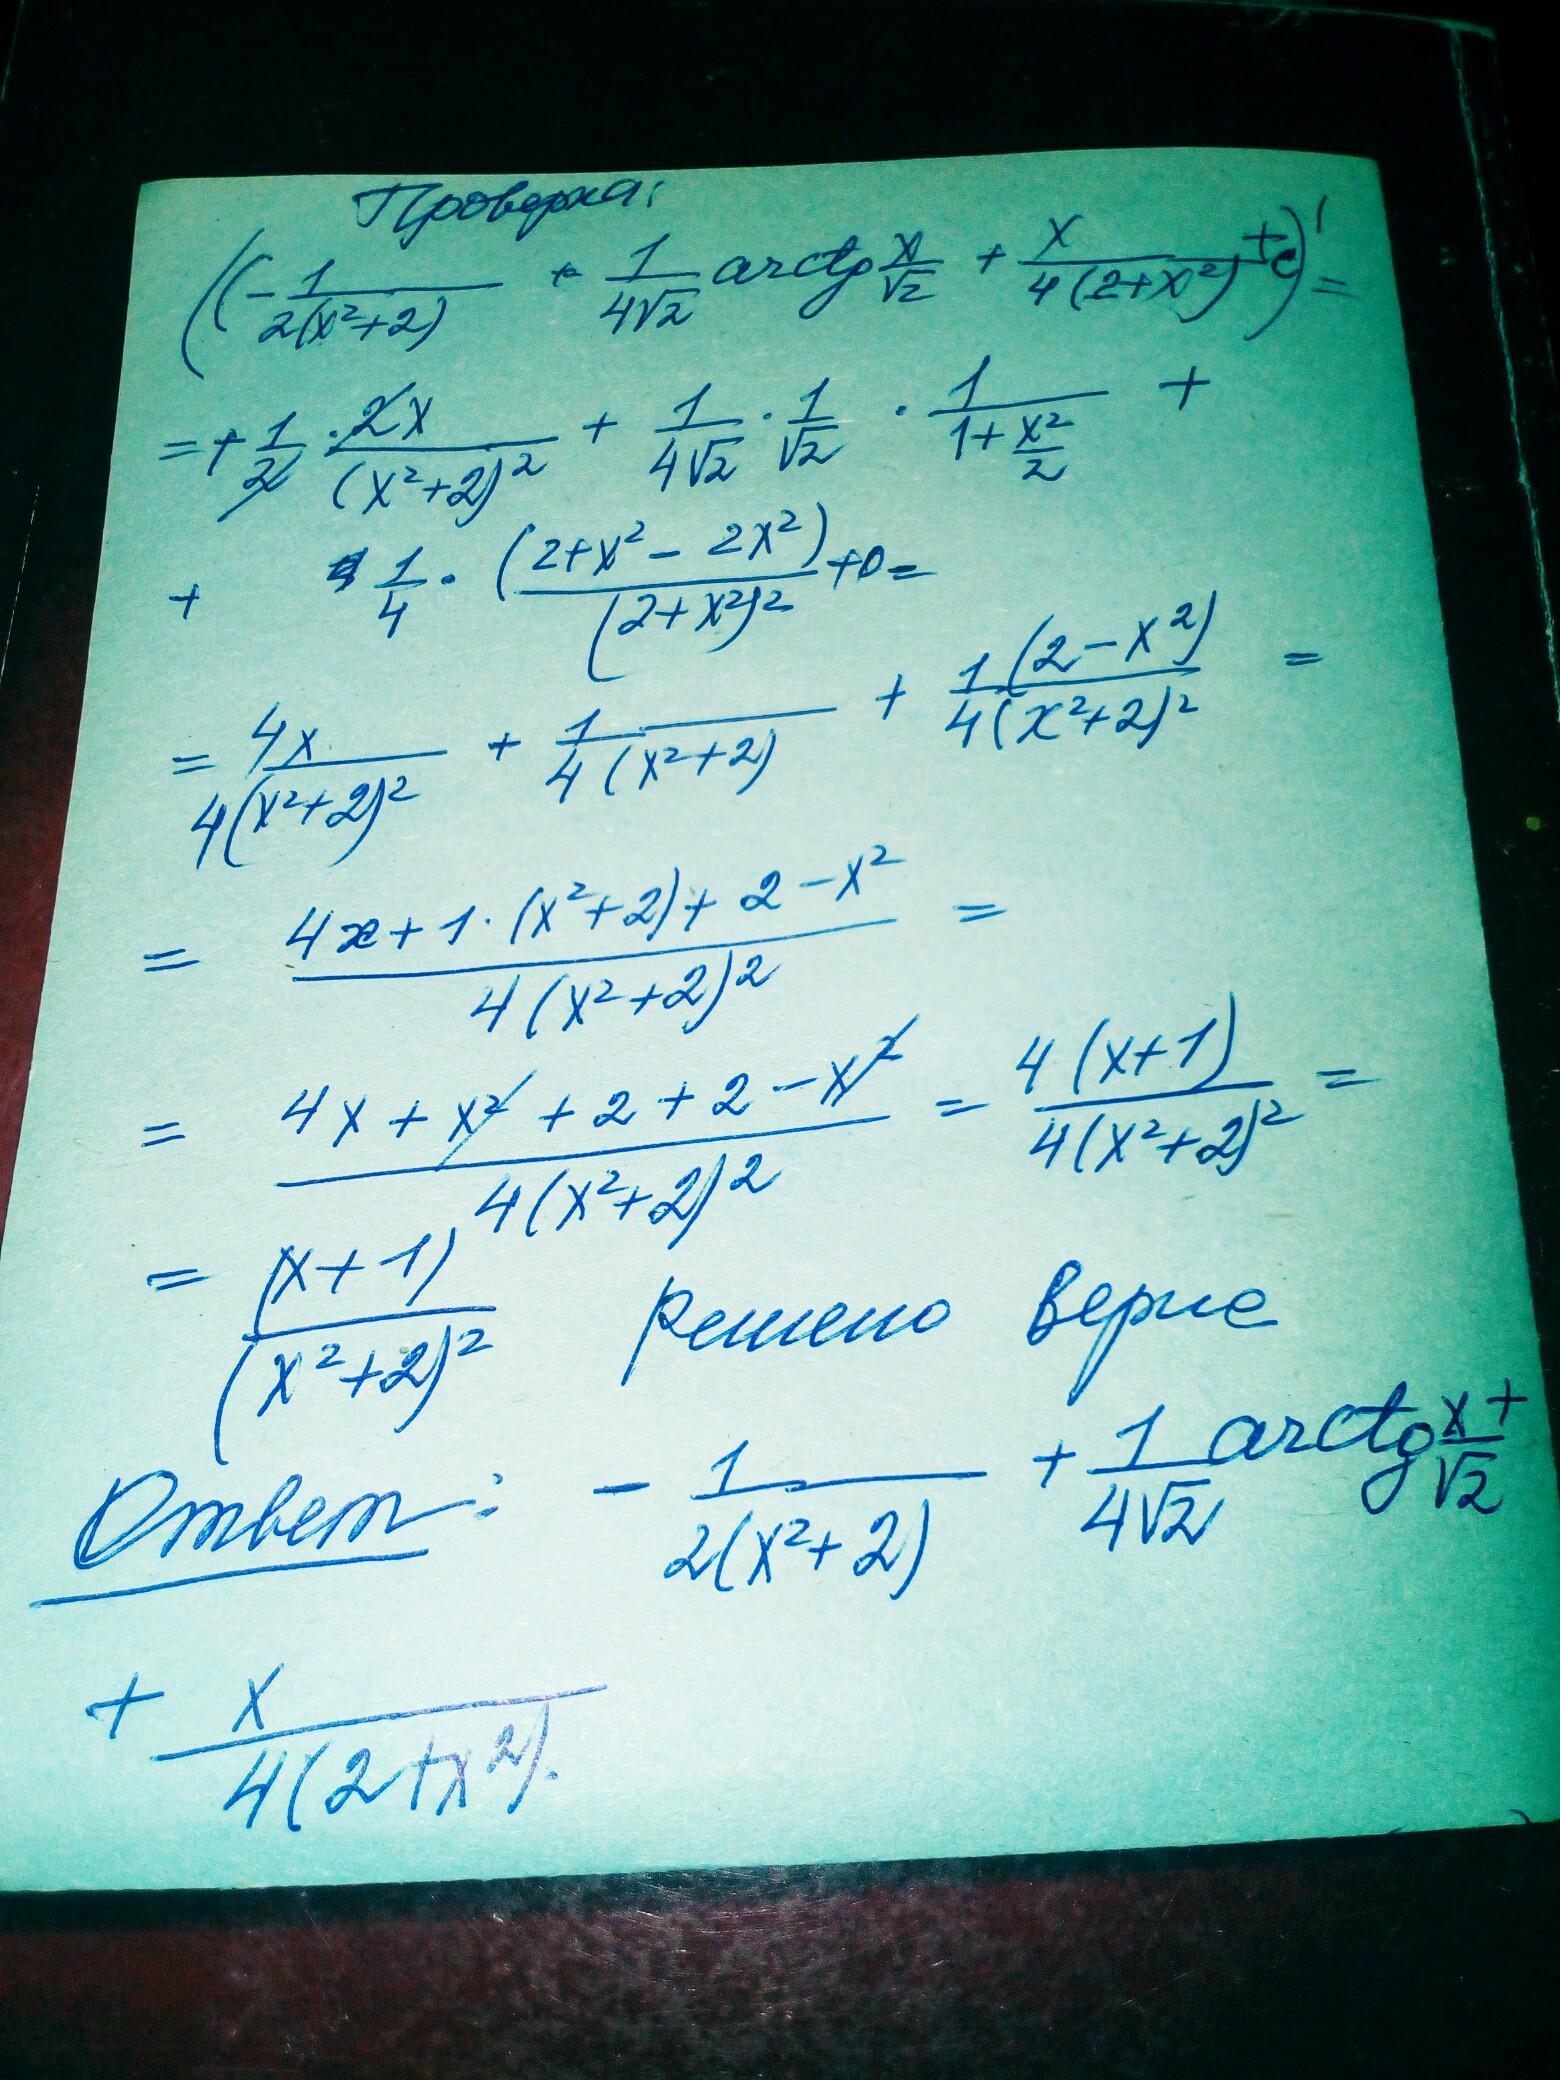 Проверка:
(-1/(2(x²+2)) + 1/(4√2) arctg x/√2 + x/(4(2+x²)) + c)' =
= +1/2 · 2x/(x²+2)² + 1/(4√2) · 1/√2 · 1/(1+x²/2) +
+ 1/4 · (2+x² - 2x²)/(2+x²)² + 0 =
= 4x/(4(x²+2)²) + 1/(4(x²+2)) + 1(2-x²)/(4(x²+2)²) =
= (4x+1·(x²+2)+2-x²)/(4(x²+2)²) =
= (4x+x²+2+2-x²)/(4(x²+2)²) = 4(x+1)/(4(x²+2)²) =
= (x+1)/(x²+2)² решено верно
Ответ: -1/(2(x²+2)) + 1/(4√2) arctg x/√2 +
+ x/(4(2+x²)).